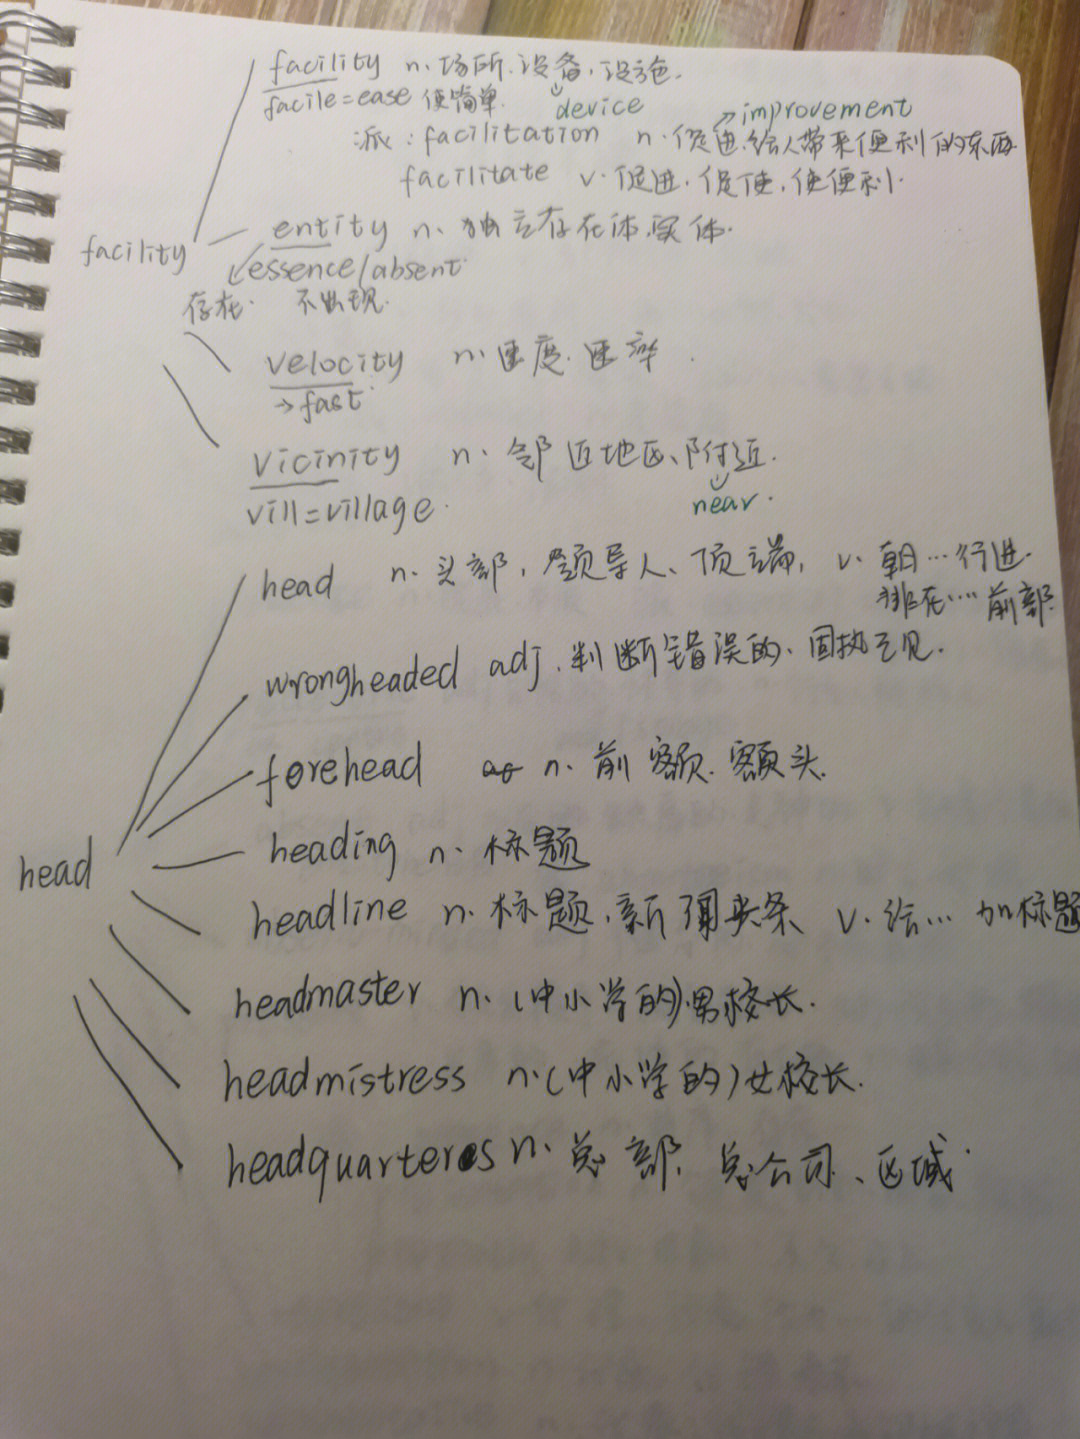 facility n. 场所、设备、设施.
facile=ease 使简单. device
improvement
派: facilitation n. 促进.给人带来便利的东西
facilitate v. 促进, 促使, 使便利.
facility
entity n. 独立存在体.实体.
essence/absent.
存在. 不出现.
velocity n. 速度.速率
→fast.
vicinity n. 邻近地区、附近.
vill=village. near.
head n. 头部, 领导人、顶端, v. 朝…行进.
排在…前部.
wrongheaded adj. 判断错误的、固执己见.
forehead n. 前额.额头.
heading n. 标题
head
headline n. 标题.新闻头条 v. 给… 加标题
headmaster n. (中小学的)男校长.
headmistress n.(中小学的)女校长.
headquarters n. 总部、总公司、区域.